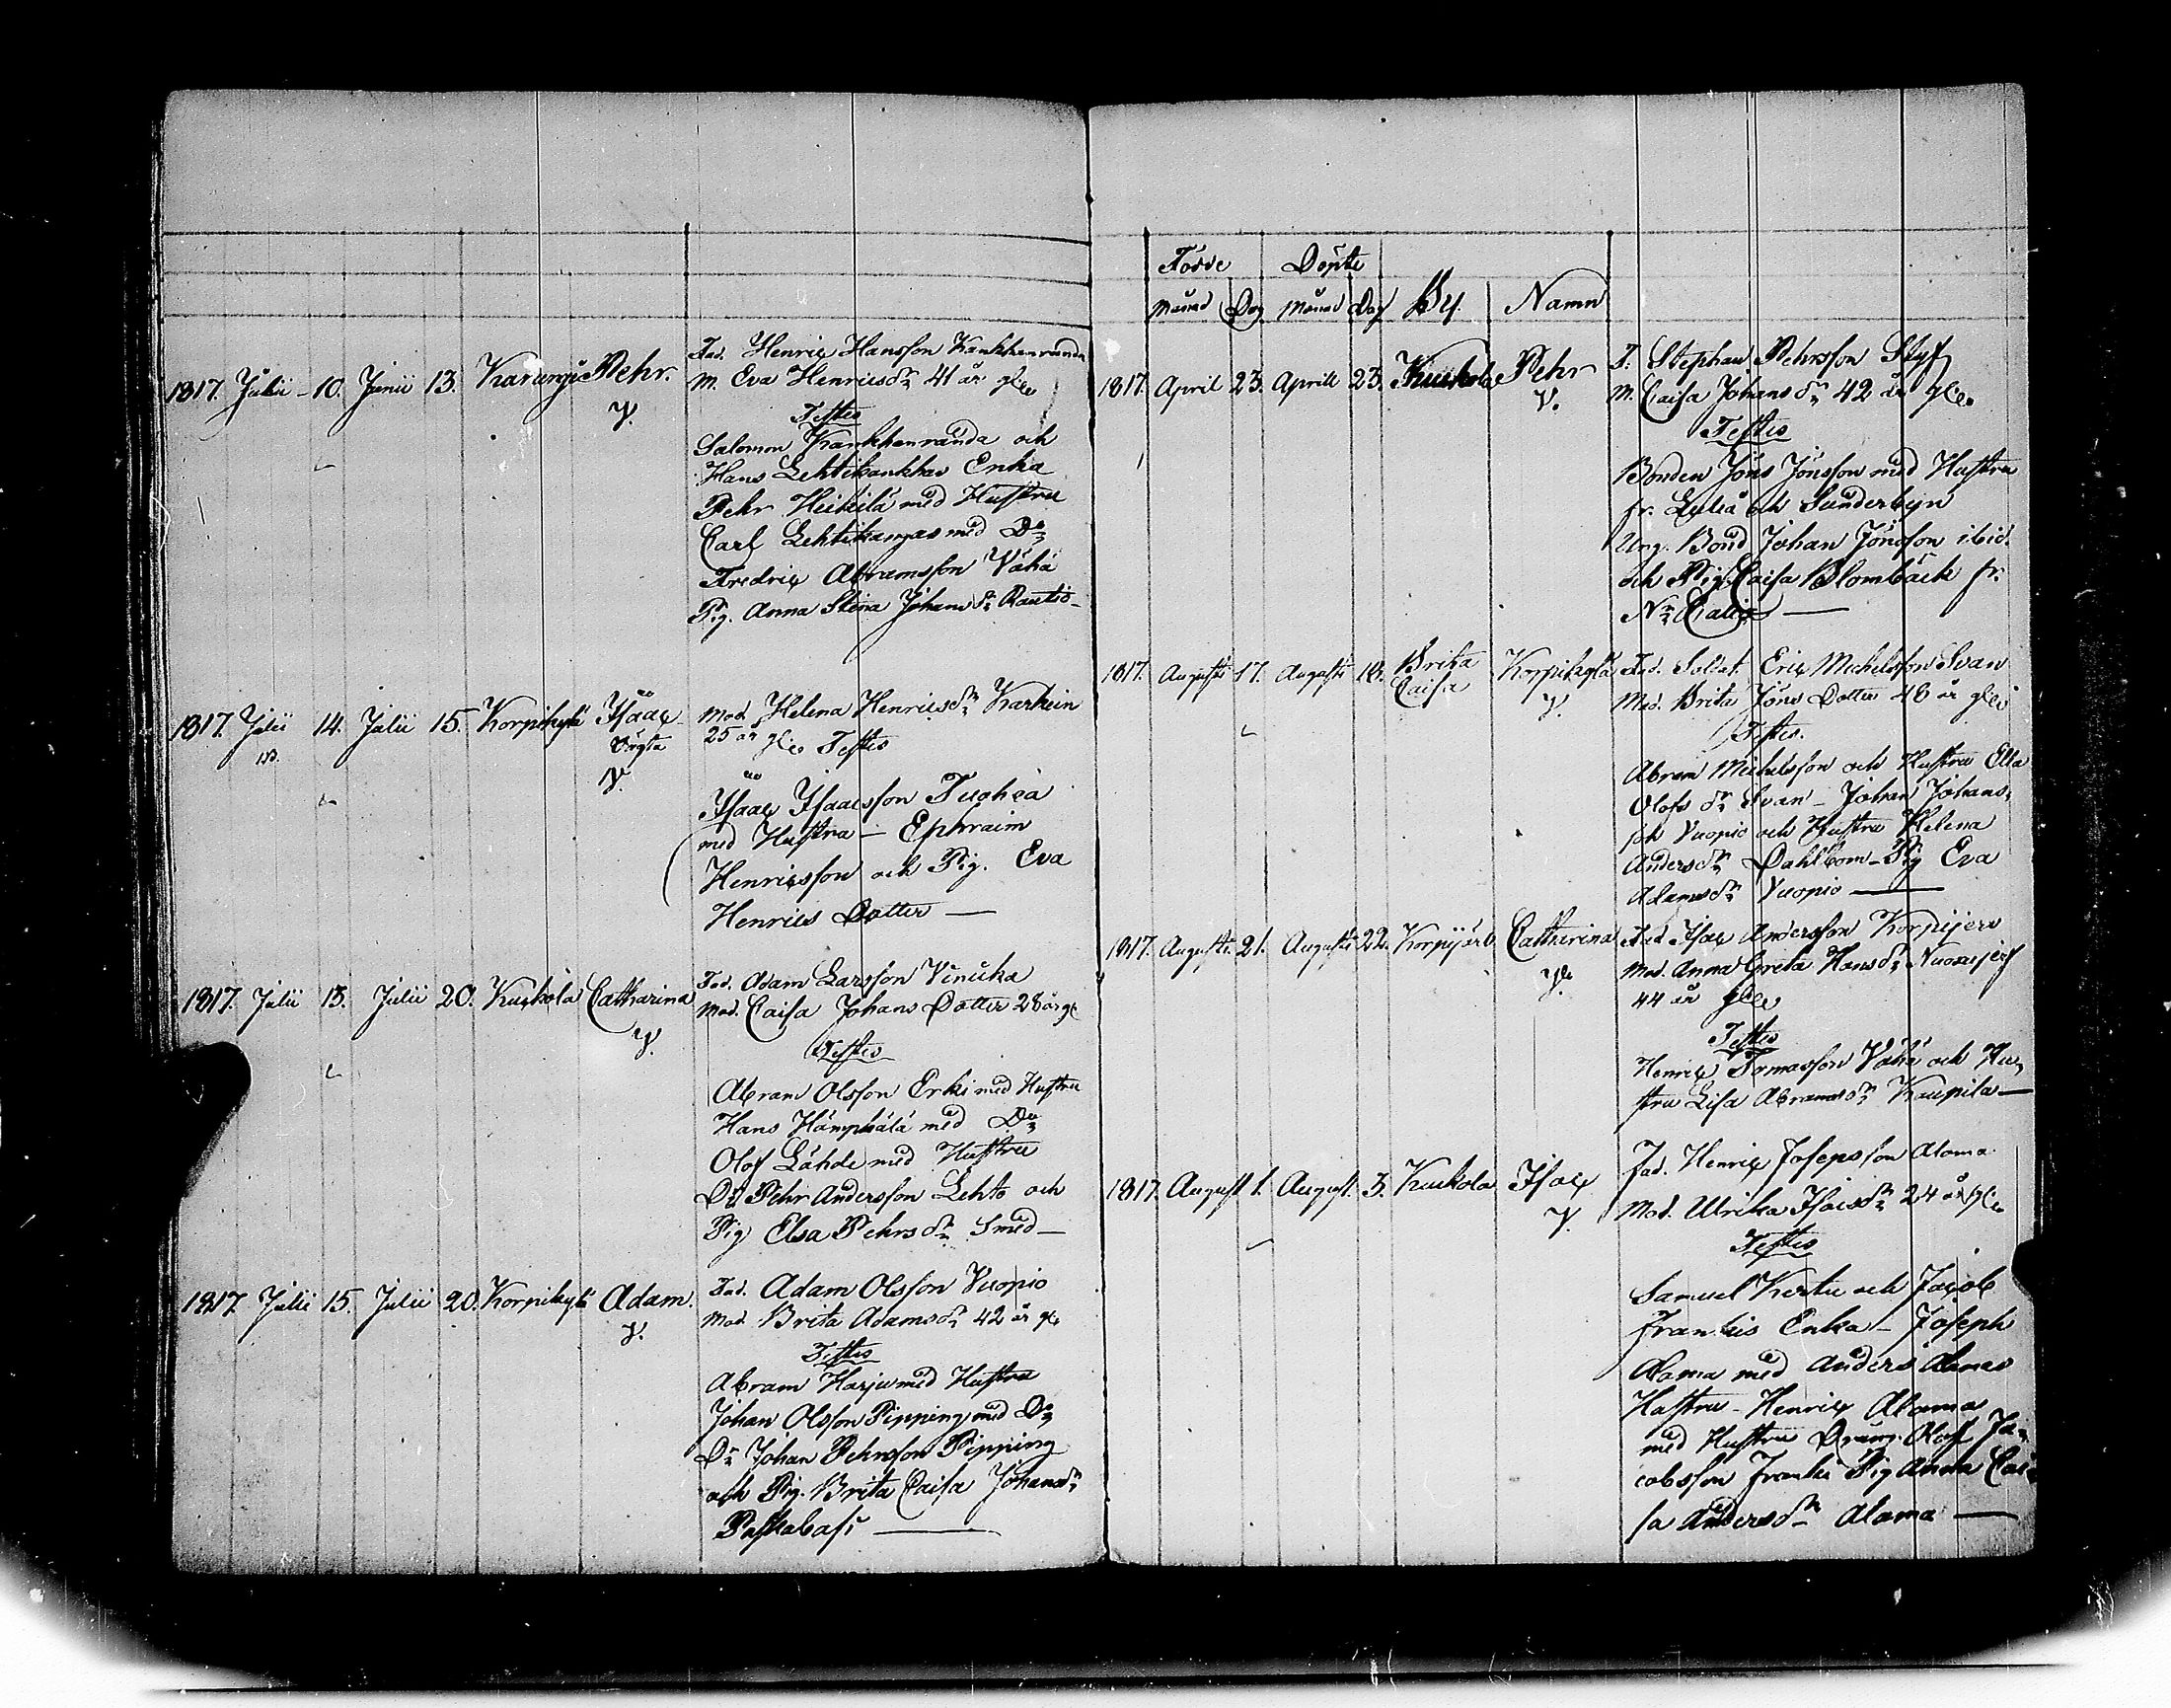 1817. Julii 10. Junii 13. Karungi Pehr.
V.
Fad. Henric Hansson Kankkanranda
M. Eva Henricsdr 41 år gl.
Testes
Salomon Kankkanranda och
Hans Lehtikankkas Enka
Pehr Heikilä med Hustru
Carl Lehtikangas med Do
Fredric Abramsson Vähä
Pig. Anna Stina Johansdr Rautio
1817. Julii 14. Julii 15. Korpikylä Isaac
oägta
V.
Mod. Helena Henricsdr Karhein
25 år gl. Testes
Isaac Isaacsson
med Hustru — Ephraim
Henricsson och Pig. Eva
Henrics Dotter —
1817. Julii 15. Julii 20. Kuckola Catharina
V.
Fad. Adam Larsson Vinicka
Mod. Caisa Johans Dotter 28 år gl
Testes
Abram Olsson Erki med Hustru
Hans Hämphälä med Do
Olof Lähde med Hustru
Dr Pehr Andersson Lehto och
Pig Elsa Pehrsdr Smed —
1817. Julii 15. Julii 20. Korpikylä Adam.
V.
Fad. Adam Olsson Vuopio
Mod. Brita Adamsdr 42 år gl
Testes
Abram Harju med Hustru
Johan Olsson Pipping med Do
Dr Johan Pehrsson Pipping
och Pig. Brita Caisa Johansdr
—
Födde Döpte
Månad Dag Månad Dag By. Namn
1817. April 23. Aprill 23. Kuckola Pehr
V.
F. Stephan Pehrsson Styf
M. Caisa Johansdr 42 år gl.
Testes
Bonden Jöns Jönsson med Hustru
fr. Luleå och Sunderbyn
Ung. Bond Johan Jönsson ibid.
och Pig. Caisa Blombäck fr.
Nr Calix —
1817. Augusti 17. Augusti 18. Brita Caisa Korpikylä
V.
Fad. Soldat. Eric Michelsson Svan
Mod. Brita Jöns Dotter 48 år gl.
Testes.
Abram Michelsson och Hustru Ella
Olofsdr Svan - Johan Johans-
son Vuopio och Hustru Helena
Andersdr Dahlbom - Pig Eva
Adamsdr Vuopio —
1817. Augusti. 21. Augusti 22. Korpijärv. Catharina
V.
Fad Isac Andersson Korpijerv
Mod. Anna Greta Hansdr
44 år gl.
Testes
Henric Tomasson Vähä och Hu-
stru Lisa Abramsdr Kaupila —
1817. August 1. August. 3. Kuckola Isac
V.
Fad. Henric Josepsson Alama
Mod. Ulrika Isacsdr 24 år gl.
Testes
Samuel Kerttu och Jacob
Frankis Enka - Joseph
Alama med Anders Alamas
Hustru - Henric Alama
med Hustru Dräng. Olof Ja-
cobsson Franki Pig Anna Cai-
sa Andersdr Alama —